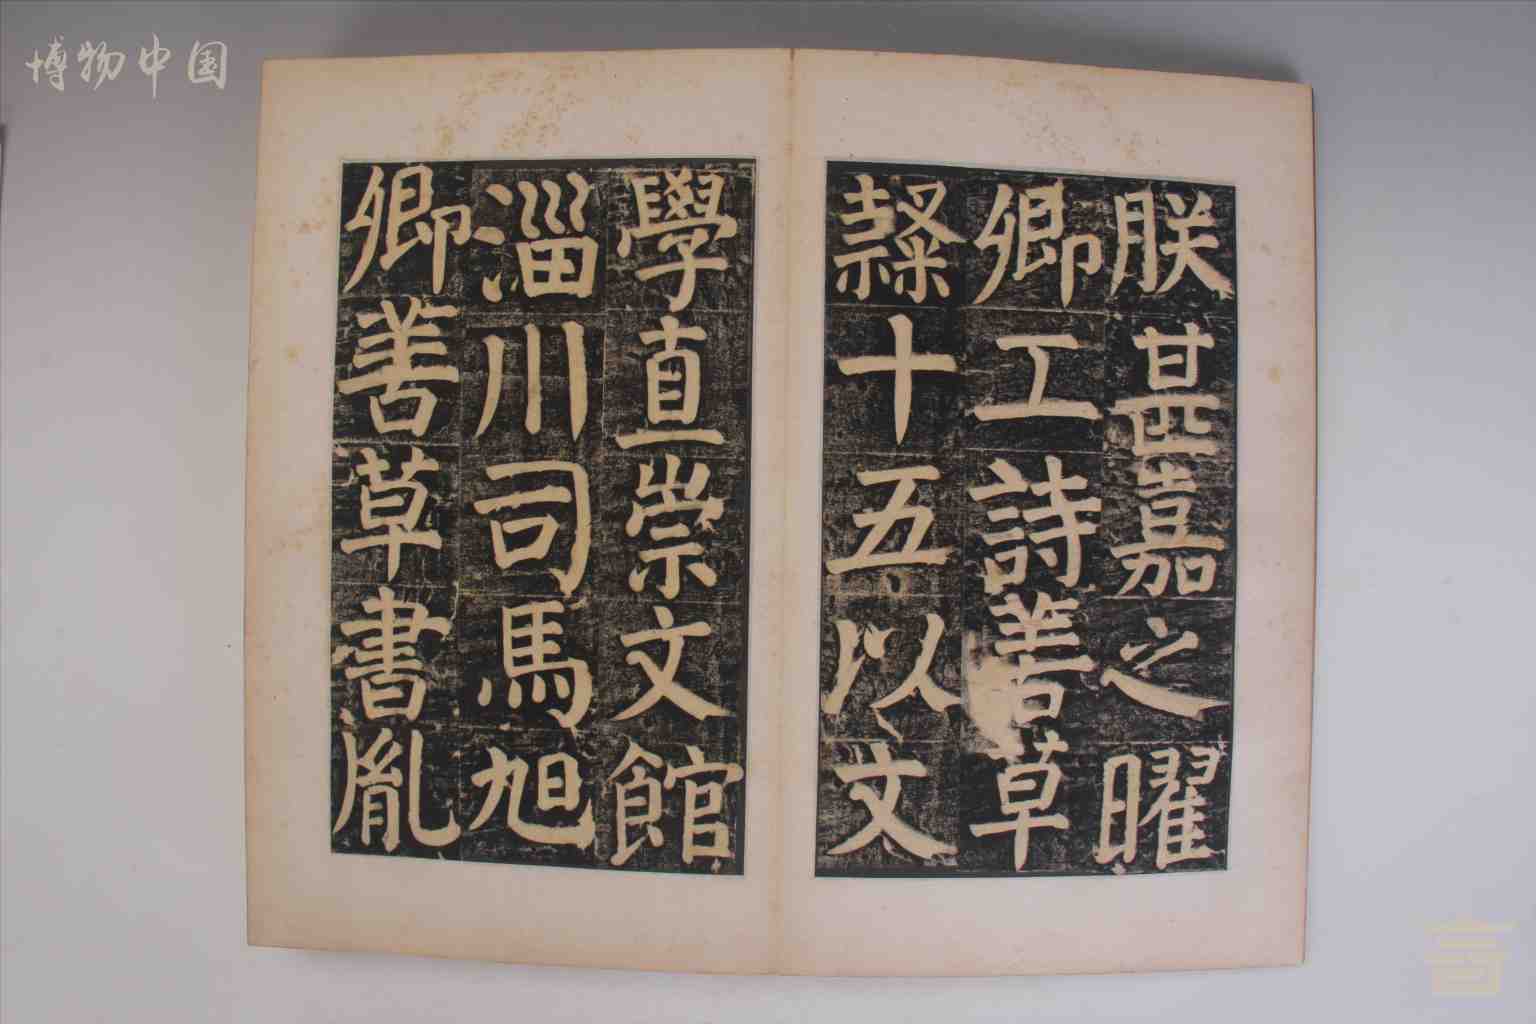 博物中国
朕甚嘉之曜
卿工詩善草
隸十五以文
學直崇文館
淄川司馬旭
卿善草書胤